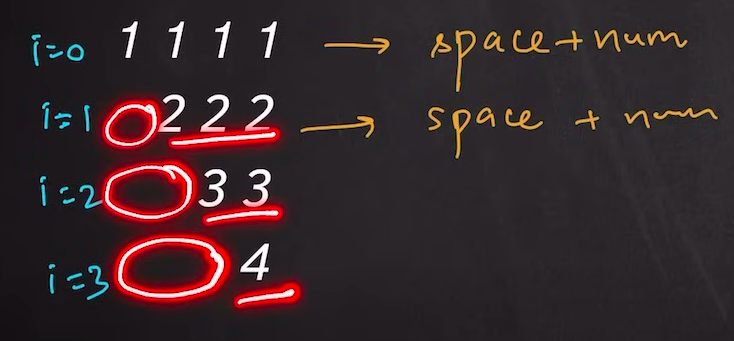 i=0 1 1 1 1 → space+num
i=1 2 2 2 → space + num
i=2 3 3
i=3 4